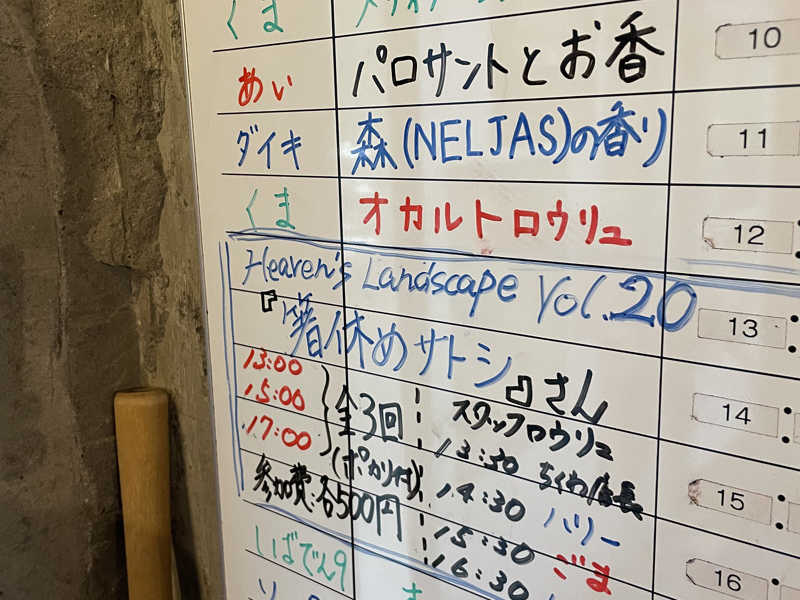 くま
めい パロサントとお香 10
ダイキ 森(NELJAS)の香り 11
くま オカルトロウリュ 12
Heaven's Landscape Vol.20 13
『箸休めサトシ』さん
13:00
15:00
17:00
全3回
(ポカリ付)
参加費:各500円
スタッフロウリュ 14
13:30 ちくわ店長
14:30 ハリー 15
15:30 ごま
16:30 16
いばでん9